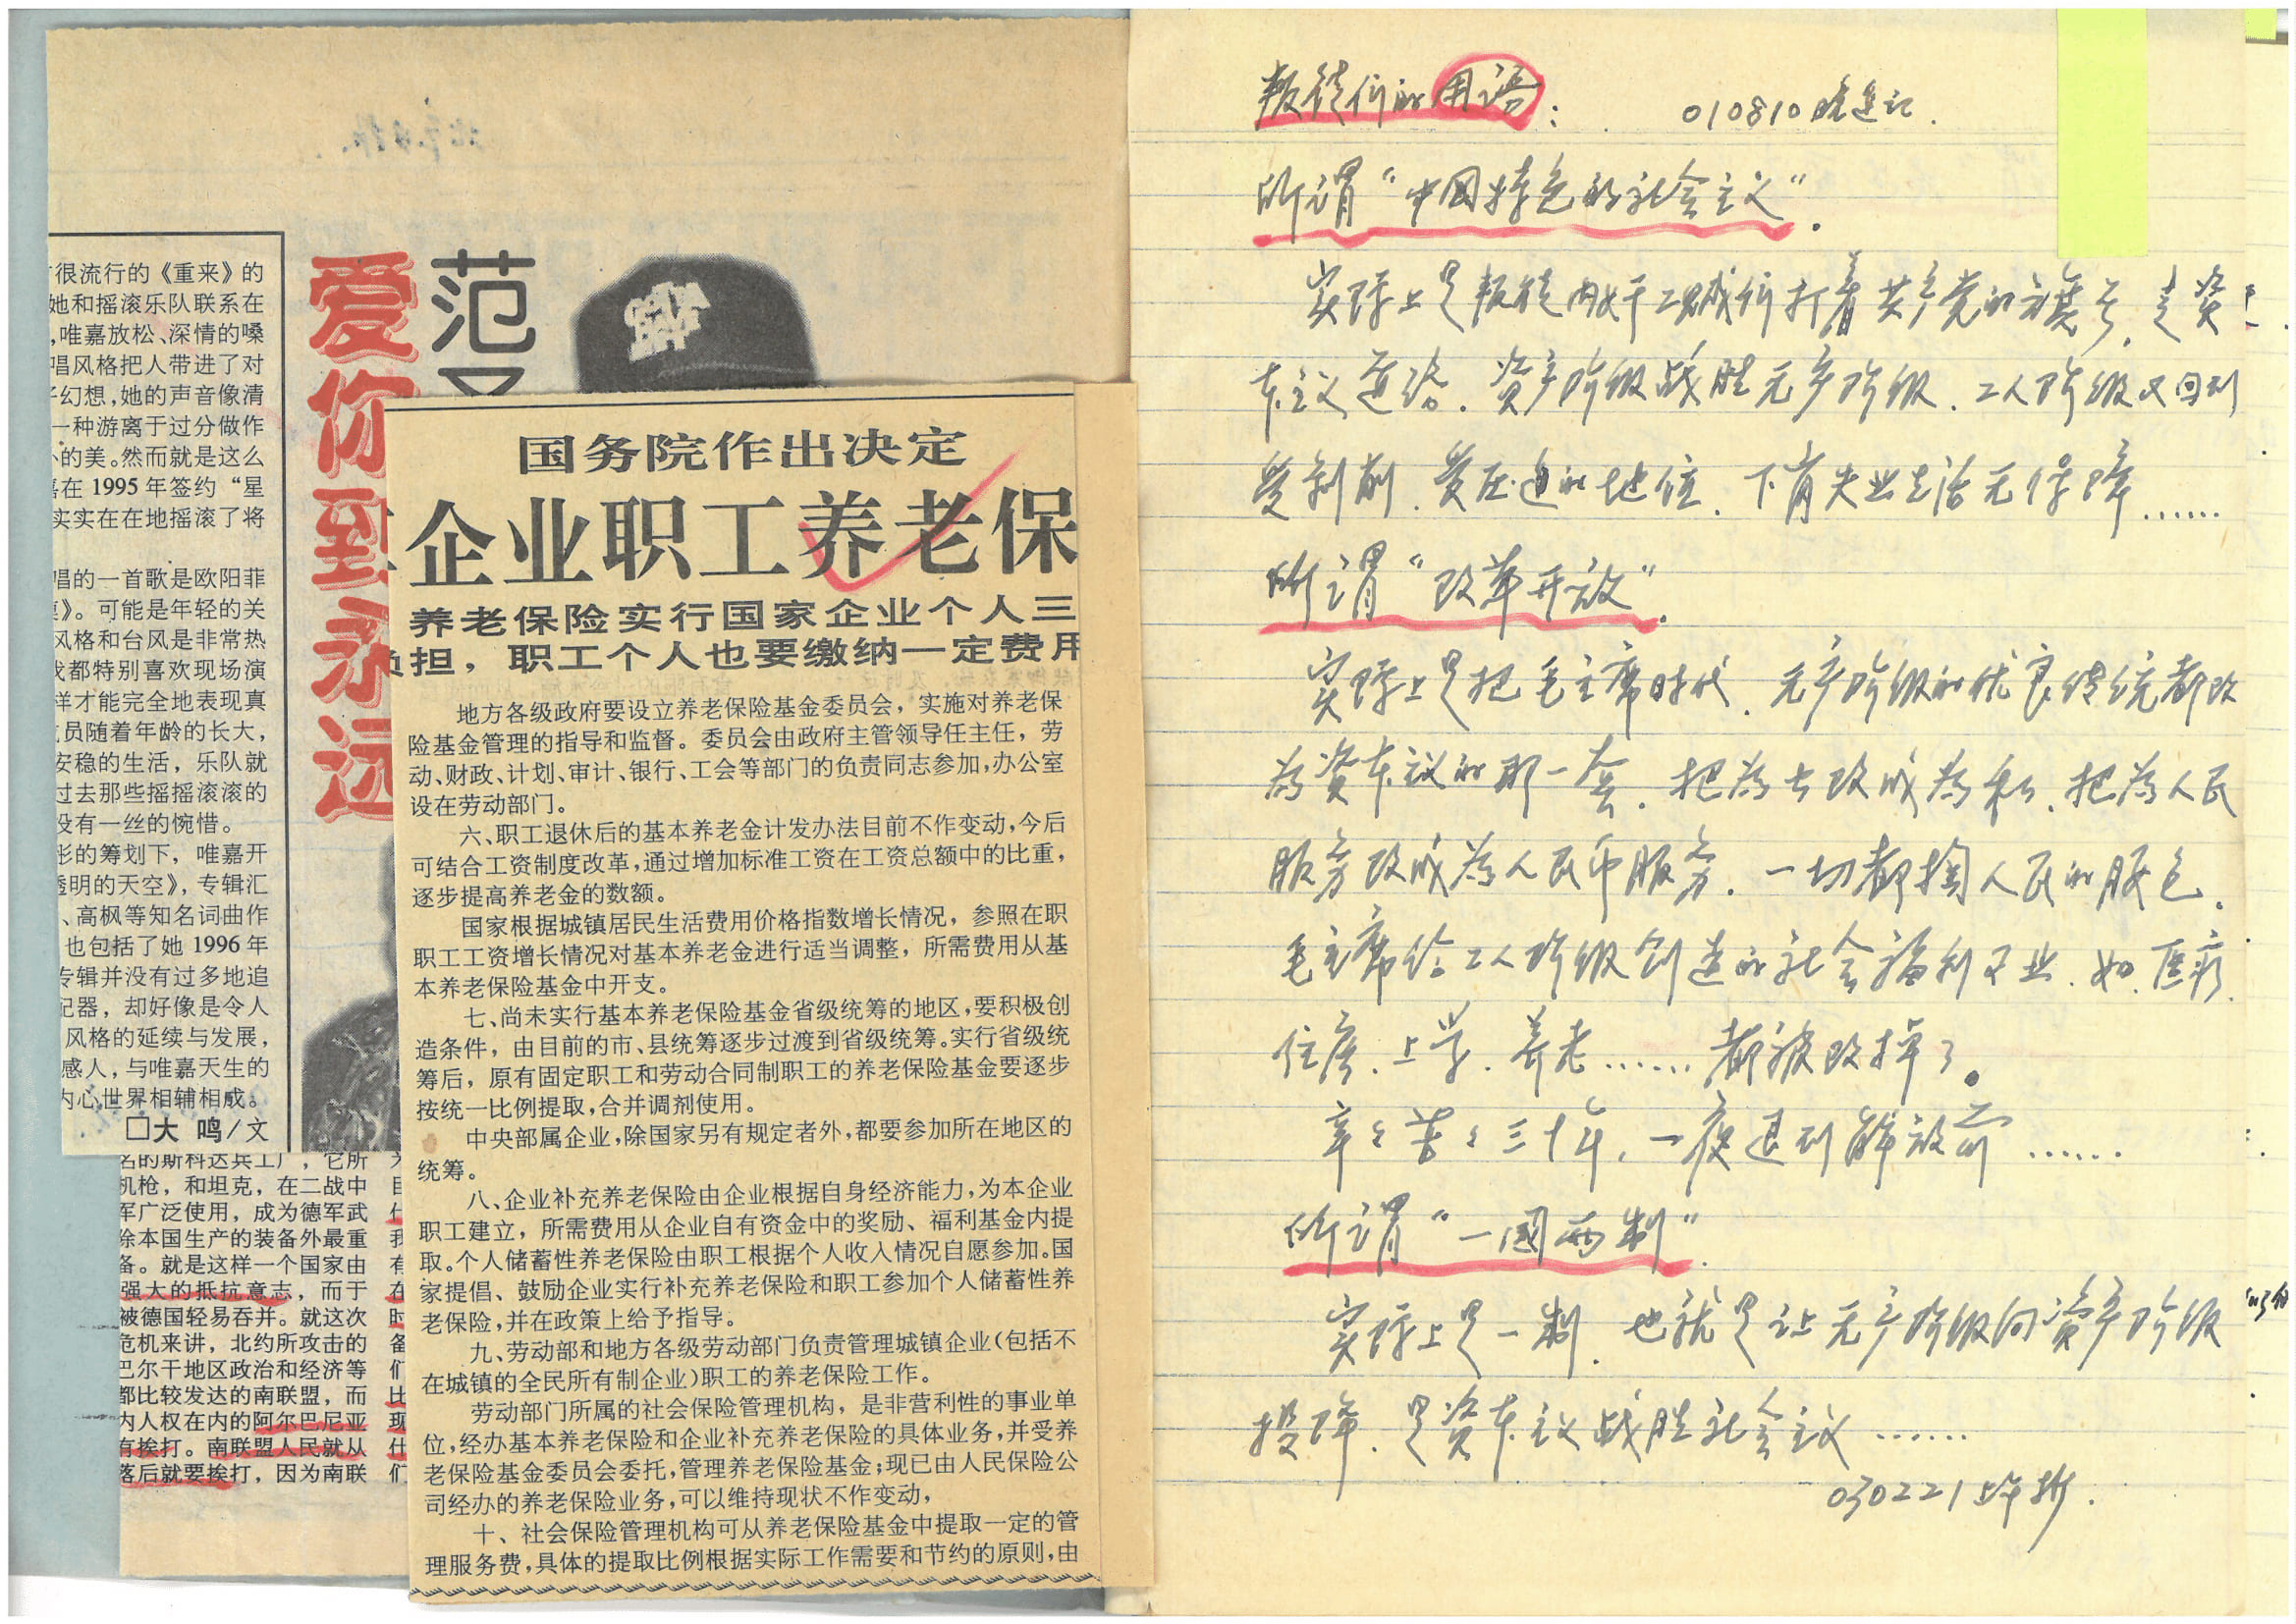 很流行的《重来》的
她和摇滚乐队联系在
,唯嘉放松、深情的嗓
唱风格把人带进了对
幻想,她的声音像清
一种游离于过分做作
的美。然而就是这么
在 1995 年签约“星
实实在在地摇滚了将
唱的一首歌是欧阳菲
》。可能是年轻的关
风格和台风是非常热
都特别喜欢现场演
样才能完全地表现真
员随着年龄的长大,
安稳的生活,乐队就
过去那些摇摇滚滚的
没有一丝的惋惜。
的筹划下,唯嘉开
透明的天空》,专辑汇
、高枫等知名词曲作
也包括了她 1996 年
专辑并没有过多地追
配器,却好像是令人
风格的延续与发展,
感人,与唯嘉天生的
内心世界相辅相成。
□大 鸣/文
爱你到永远
范
名的斯科达兵工厂,它所
机枪,和坦克,在二战中
军广泛使用,成为德军武
除本国生产的装备外最重
备。就是这样一个国家由
强大的抵抗意志,而于
被德国轻易吞并。就这次
危机来讲,北约所攻击的
巴尔干地区政治和经济等
都比较发达的南联盟,而
内人权在内的阿尔巴尼亚
有挨打。南联盟人民就从
落后就要挨打,因为南联
国务院作出决定
企业职工养老保
养老保险实行国家企业个人三
负担,职工个人也要缴纳一定费用
地方各级政府要设立养老保险基金委员会,实施对养老保
险基金管理的指导和监督。委员会由政府主管领导任主任,劳
动、财政、计划、审计、银行、工会等部门的负责同志参加,办公室
设在劳动部门。
六、职工退休后的基本养老金计发办法目前不作变动,今后
可结合工资制度改革,通过增加标准工资在工资总额中的比重,
逐步提高养老金的数额。
国家根据城镇居民生活费用价格指数增长情况,参照在职
职工工资增长情况对基本养老金进行适当调整,所需费用从基
本养老保险基金中开支。
七、尚未实行基本养老保险基金省级统筹的地区,要积极创
造条件,由目前的市、县统筹逐步过渡到省级统筹。实行省级统
筹后,原有固定职工和劳动合同制职工的养老保险基金要逐步
按统一比例提取,合并调剂使用。
中央部属企业,除国家另有规定者外,都要参加所在地区的
统筹。
八、企业补充养老保险由企业根据自身经济能力,为本企业
职工建立,所需费用从企业自有资金中的奖励、福利基金内提
取。个人储蓄性养老保险由职工根据个人收入情况自愿参加。国
家提倡、鼓励企业实行补充养老保险和职工参加个人储蓄性养
老保险,并在政策上给予指导。
九、劳动部和地方各级劳动部门负责管理城镇企业(包括不
在城镇的全民所有制企业)职工的养老保险工作。
劳动部门所属的社会保险管理机构,是非营利性的事业单
位,经办基本养老保险和企业补充养老保险的具体业务,并受养
老保险基金委员会委托,管理养老保险基金;现已由人民保险公
司经办的养老保险业务,可以维持现状不作变动,
十、社会保险管理机构可从养老保险基金中提取一定的管
理服务费,具体的提取比例根据实际工作需要和节约的原则,由
叛徒们的用语: 010810晚追记.
所谓“中国特色的社会主义”.
实际上是叛徒内奸工贼们打着共产党的旗号,走资
本主义道路.资产阶级战胜无产阶级.工人阶级又回到
受剥削.受压迫的地位.下岗失业生活无保障……
所谓“改革开放”.
实际上是把毛主席时代.无产阶级的优良传统都改
为资本主义的那一套.把为公改成为私.把为人民
服务改成为人民币服务.一切都掏人民的腰包.
毛主席给工人阶级创造的社会福利事业.如.医疗.
住房.上学.养老……都被改掉了。
辛辛苦苦三十年,一夜退到解放前……
所谓“一國两制”.
实际上是一制.也就是让无产阶级向资产阶级
投降.是资本主义战胜社会主义……
030221上午抄.